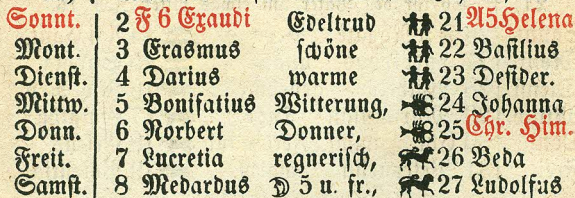 Sonnt. 2 F 6 Exaudi Edeltrud 21 A5 Helena
Mont. 3 Erasmus schöne 22 Basilius
Dienst. 4 Darius warme 23 Desider.
Mittw. 5 Bonifatius Witterung, 24 Johanna
Donn. 6 Norbert Donner, 25 Chr. Him.
Freit. 7 Lucretia regnerisch, 26 Beda
Samst. 8 Medardus ☽ 5 u. fr., 27 Ludolfus